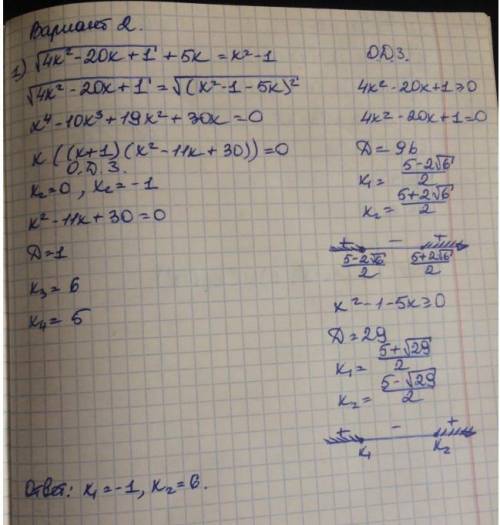 Вариант 2.
1) √4x²-20x+1 + 5x = x²-1
√4x²-20x+1 = √(x²-1-5x)²
x⁴-10x³+19x²+30x=0
x((x+1)(x²-11x+30))=0
О.Д.З.
x₁=0, x₂=-1
x²-11x+30=0
D=1
x₃=6
x₄=5
ОДЗ.
4x²-20x+1≥0
4x²-20x+1=0
D=96
x₁= (5-2√6)/2
x₂= (5+2√6)/2
+ - +
(5-2√6)/2 (5+2√6)/2
x²-1-5x≥0
D=29
x₁= (5+√29)/2
x₂= (5-√29)/2
+ - +
x₁ x₂
Ответ: x₁=-1, x₂=6.